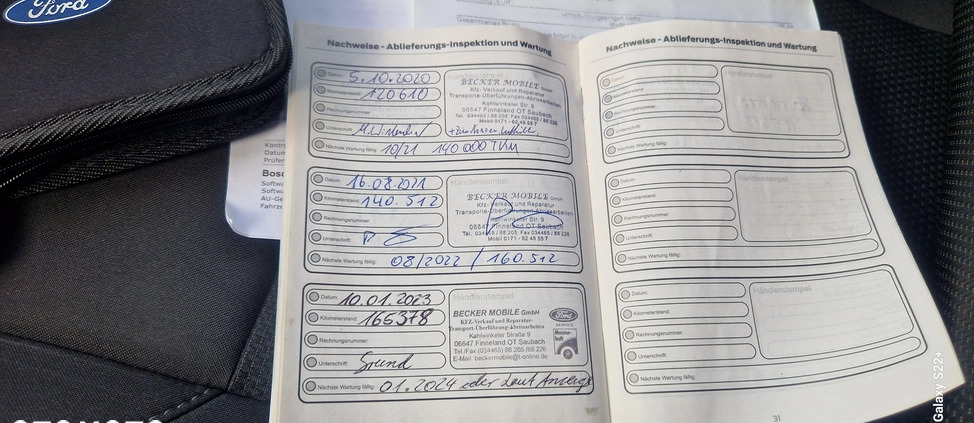 Ford
Nachweise - Ablieferungs-Inspektion und Wartung
Datum: 5.10.2020
Kilometerstand: 120610
Rechnungsnummer:
Unterschrift:
Nächste Wartung fällig: 10/21 140 000 TKM
Händlerstempel
BECKER MOBILE GmbH
Kfz.-Verkauf und Reparatur
Transporte-Überführungen-Abrissarbeiten
Kahlwinkeler Str. 9
06647 Finneland OT Saubach
Tel. 034465 / 88 205 Fax 034465 / 88 226
Mobil 0171 - 62 48 55 7
Datum: 16.08.2021
Kilometerstand: 140.512
Rechnungsnummer:
Unterschrift:
Nächste Wartung fällig: 08/2022 / 160.512
Händlerstempel
BECKER MOBILE GmbH
Kfz-Verkauf und Reparatur
Transporte-Überführungen-Abrissarbeiten
Kahlwinkeler Str. 9
06647 Finneland OT Saubach
Tel. 034465 / 88 205 Fax 034465 / 88 226
Mobil 0171 - 62 48 55 7
Datum: 10.01.2023
Kilometerstand: 165378
Rechnungsnummer:
Unterschrift: Grund
Nächste Wartung fällig: 01.2024 oder laut Anzeige
Händlerstempel
BECKER MOBILE GmbH
KFZ-Verkauf und Reparatur-
Transport-Überführung-Abrissarbeiten
Kahlwinkeler Straße 9
06647 Finneland OT Saubach
Tel./Fax (034465) 88 205 /88 226
E-Mail: beckermobile@t-online.de
Ford
SERVICE
Nachweise - Ablieferungs-Inspektion und Wartung
Datum:
Kilometerstand:
Rechnungsnummer:
Unterschrift:
Nächste Wartung fällig:
Händlerstempel
Datum:
Kilometerstand:
Rechnungsnummer:
Unterschrift:
Nächste Wartung fällig:
Händlerstempel
Datum:
Kilometerstand:
Rechnungsnummer:
Unterschrift:
Nächste Wartung fällig:
Händlerstempel
31
Galaxy S22+